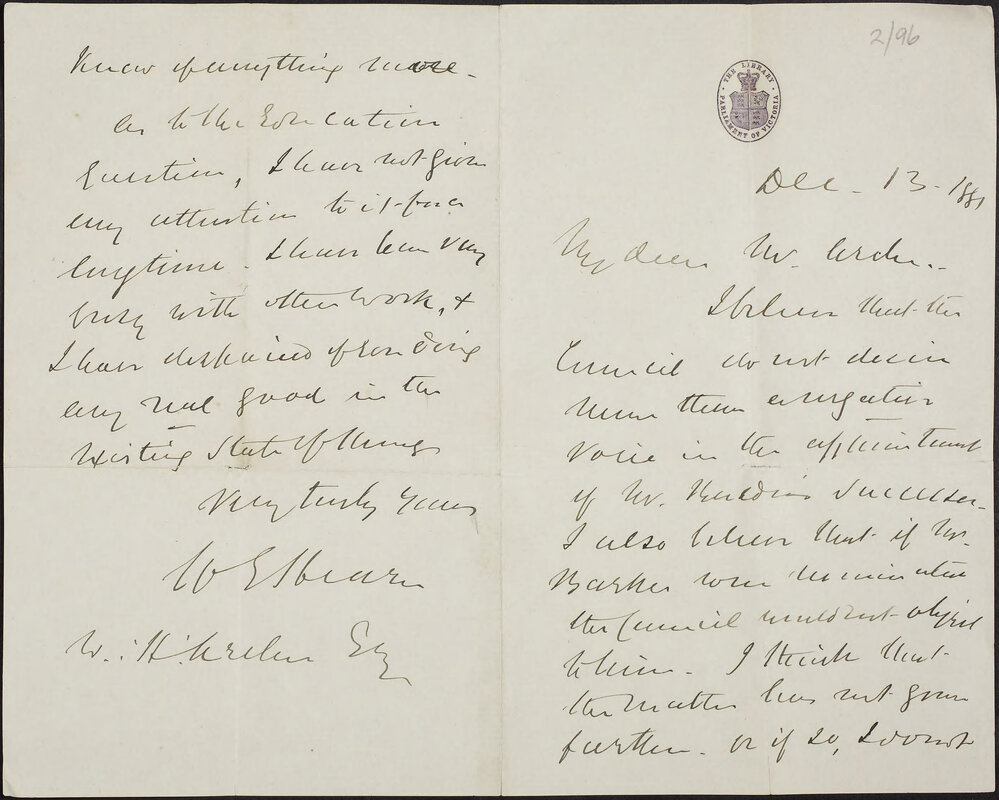 2/96
THE LIBRARY
PARLIAMENT OF VICTORIA
Dec - 13 - 1881
My dear Mr. Archer -
I believe that the
Council do not desire
more than a negative
voice in the appointment
of Mr. successor -
I also believe that if Mr.
Barker were nominated
the Council would not object
to him - I think that
the matter has not gone
further - or if so, I do not
know of anything more -
As to the Education
question, I have not given
any attention to it for a
long time - I have been very
busy with other work, &
I have despaired of our doing
any real good in the
existing state of things
Very truly yours
W E Hearn
W. H. Archer Esq